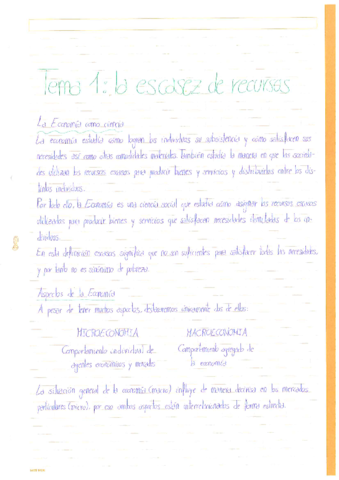 Tema 1: la escasez de recursos
La Economía como ciencia
La economía estudia cómo logran los individuos su subsistencia y cómo satisfacen sus
necesidades así como otras comodidades materiales. También estudia la manera en que las sociedades
utilizan los recursos escasos para producir bienes y servicios y distribuirlos entre los distintos
individuos.
Por todo ello, la Economía es una ciencia social que estudia cómo asignar los recursos escasos
utilizados para producir bienes y servicios que satisfacen necesidades ilimitadas de los in-
dividuos.
En esta definición escasos significa que no son suficientes para satisfacer todas las necesidades,
y por tanto no es sinónimo de pobreza.
Aspectos de la Economía
A pesar de tener muchos aspectos, destacaremos únicamente dos de ellos:
MICROECONOMÍA MACROECONOMÍA
Comportamiento individual de Comportamiento agregado de
agentes económicos y mercados la economía
La situación general de la economía (macro) influye de manera decisiva en los mercados
particulares (micro), por eso ambos aspectos están interrelacionados de forma estrecha.